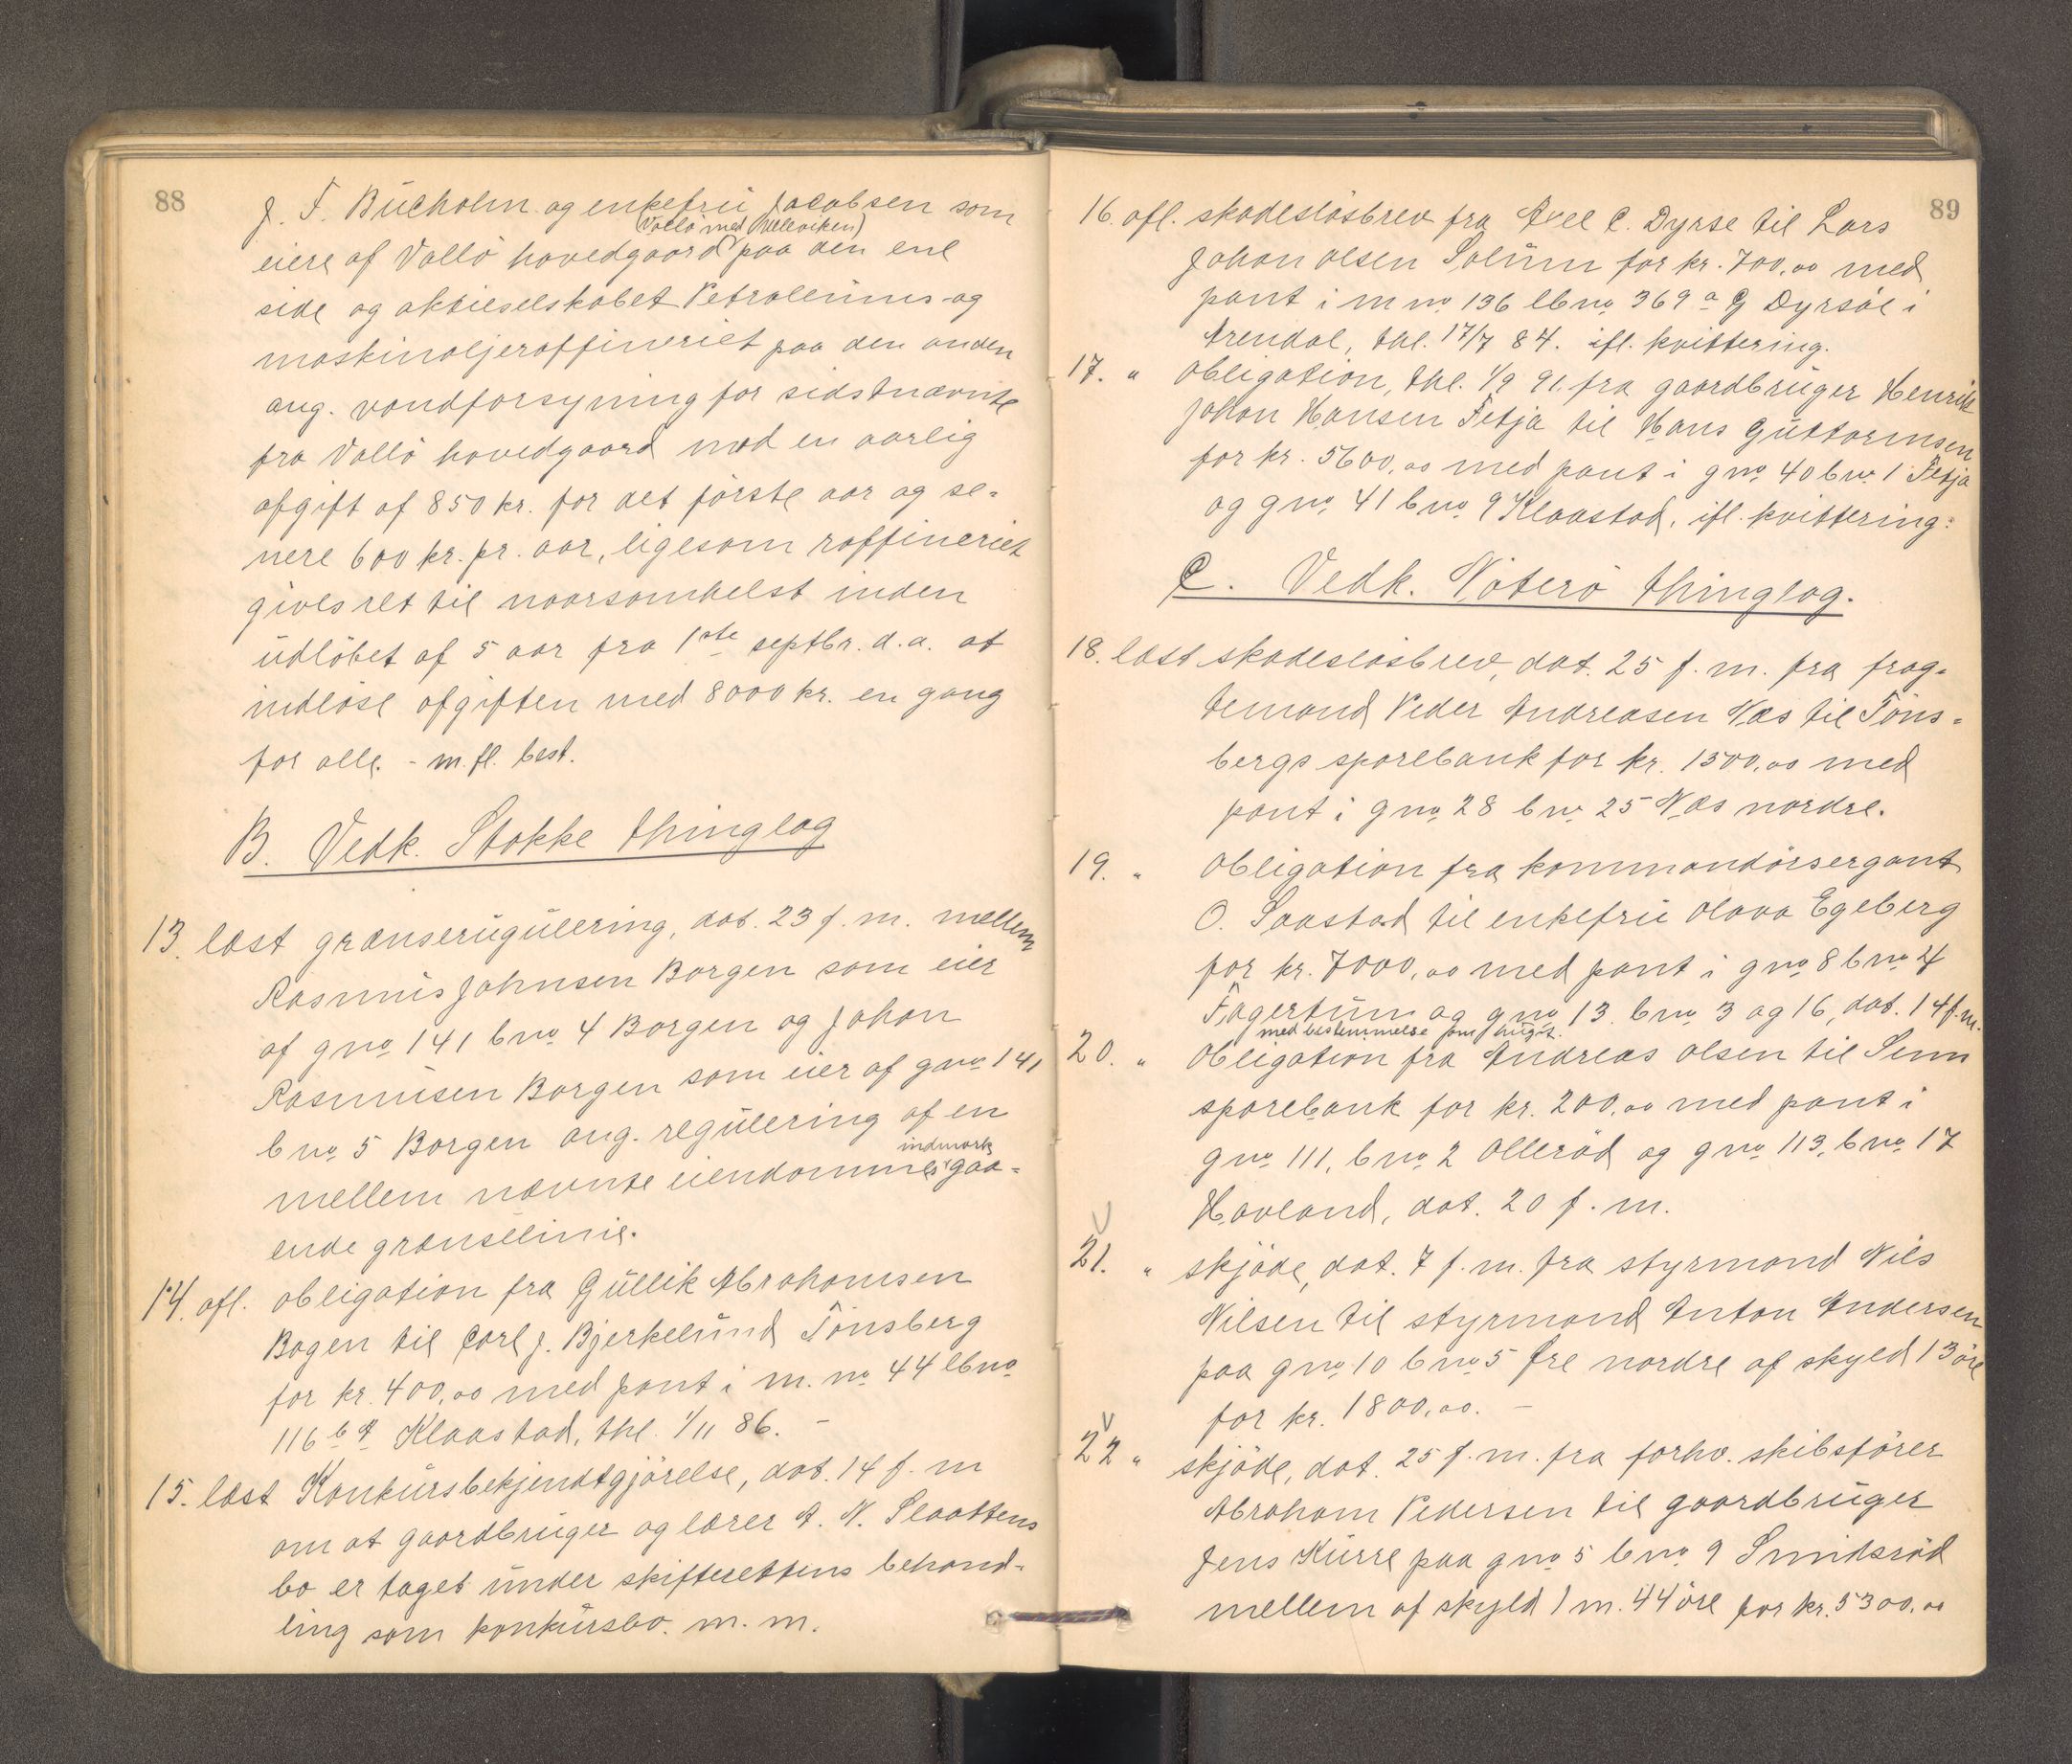 88
J. F. Bucholm og enkefru Jacobsen som
(Vallö med Ulleviken)
eiere af Vallö hovedgaard paa den ene
side og aktieselskabet Petroleums- og
maskinoljeraffineriet paa den anden
ang. vandforsyning for sidstnævnte
fra Vallö hovedgaard mod en aarlig
afgift af 850 kr. for det förste aar og se-
nere 600 kr. pr. aar, ligesom raffineriet
gives ret til naarsomhelst inden
udlöbet af 5 aar fra 1ste septbr. d.a. at
indlöse afgiften med 8000 kr. en gang
for alle. - m. fl. best.
B. Vedk. Stokke thinglag
13. læst grænserugulering, dat. 23 f. m. mellem
Rasmus Johnsen Borgen som eier
af gno 141 bno 4 Borgen og Johan
Rasmusen Borgen som eier af gno 141
bno 5 Borgen ang. regulering af en
indmark
mellem nævnte eiendommes gaa-
ende grænselinie.
14. afl. obligation fra Gullik Abrahamsen
Bogen til Carl J. Bjerkelund Tönsberg
for kr. 400,00 med pant i m. no 44 lbno
116 b Klaastad, thl. 1/11 86. -
15. læst Konkursbekjendtgjörelse, dat. 14 f. m
om at gaardbruger og lærer A. N. Slaattens
bo er taget under skifterettens behand-
ling som konkursbo. m. m.
89
16. afl. skadeslösbrev fra Axel C. Dyrse til Lars
Johan Olsen Solum for kr. 700,00 med
pant i m no 136 lbno 369 a Dyrsöe i
Arendal, thl. 17/7 84. ifl. kvittering.
17. " obligation, thl. 1/9 91. fra gaardbruger Henrik
Johan Hansen Fetja til Hans Guttormsen
for kr. 5600,00 med pant i gno 40 bno 1 Fetja
og gno 41 bno 9 Klaastad, ifl. kvittering:
C. Vedk. Nöterö thinglag.
18. læst skadeslösbrev, dat. 25 f. m. fra frag-
temand Peder Andreasen Næs til Töns-
bergs sparebank for kr. 1500,00 med
pant i gno 28 bno 25 Næs nordre.
19. " obligation fra kommandörsergant
O. Saastad til enkefru Olava Egeberg
for kr. 7000,00 med pant i gno 8 bno 4
Fagertun og gno 13 bno 3 og 16, dat. 14 f. m.
med bestemmelse om
20. " obligation fra Andreas Olsen til Sem
sparebank for kr. 200,00 med pant i
gno 111, bno 2 Olleröd og gno 113, bno 17
Havland, dat. 20 f. m.
21. " skjöde, dat. 7 f. m. fra styrmand Nils
Nilsen til styrmand Anton Andersen
paa gno 10 bno 5 Ore nordre af skyld 13 öre
for kr. 1800,00. -
22 " skjöde, dat. 25 f. m. fra forhv. skibsförer
Abraham Pedersen til gaardbruger
Jens Kurre paa gno 5 bno 9 Smidsröd
mellem af skyld 1 m. 44 öre for kr. 5300,00